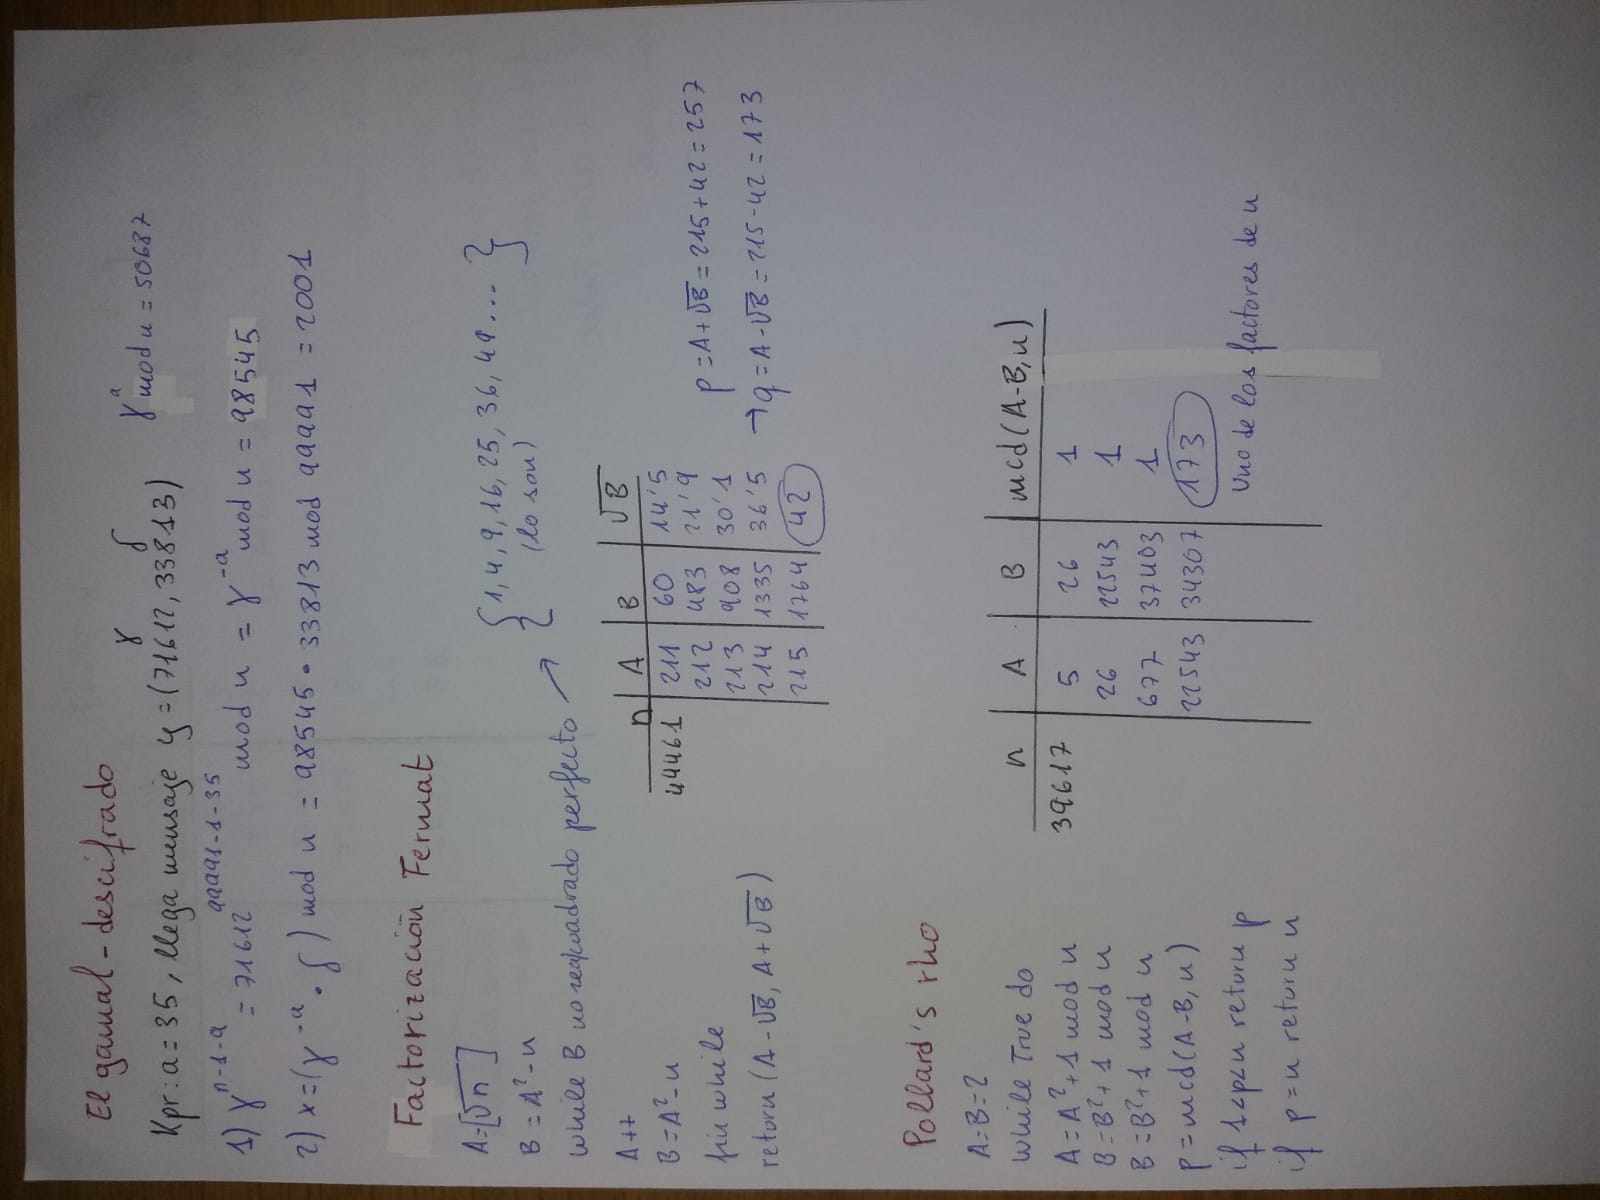 El gamal - descifrado
γ δ
γ^a mod n = 50687
Kpr: a = 35, llega mensaje y = (71612, 33813)
1) γ^n-1-a = 71612^99991-1-35 mod n = γ^-a mod n = 98545
2) x = (γ^-a · δ) mod n = 98545 · 33813 mod 99991 = 2001
Factorización Fermat
A = [√n]
{1, 4, 9, 16, 25, 36, 49 ... }
B = A² - n
(lo son)
while B no sea cuadrado perfecto →
A++
B = A² - n
fin while
return (A - √B, A + √B)
n A B √B
44461 211 60 14'5
212 483 21'9
213 908 30'1
214 1335 36'5
215 1764 42
p = A + √B = 215 + 42 = 257
→ q = A - √B = 215 - 42 = 173
Pollard's rho
A = B = 2
while True do
A = A² + 1 mod n
B = B² + 1 mod n
B = B² + 1 mod n
p = mcd(A-B, n)
if 1<p<n return p
if p = n return n
n A B mcd(A-B, n)
39617 5 26 1
26 22543 1
677 37403 1
22543 34307 173
Uno de los factores de n